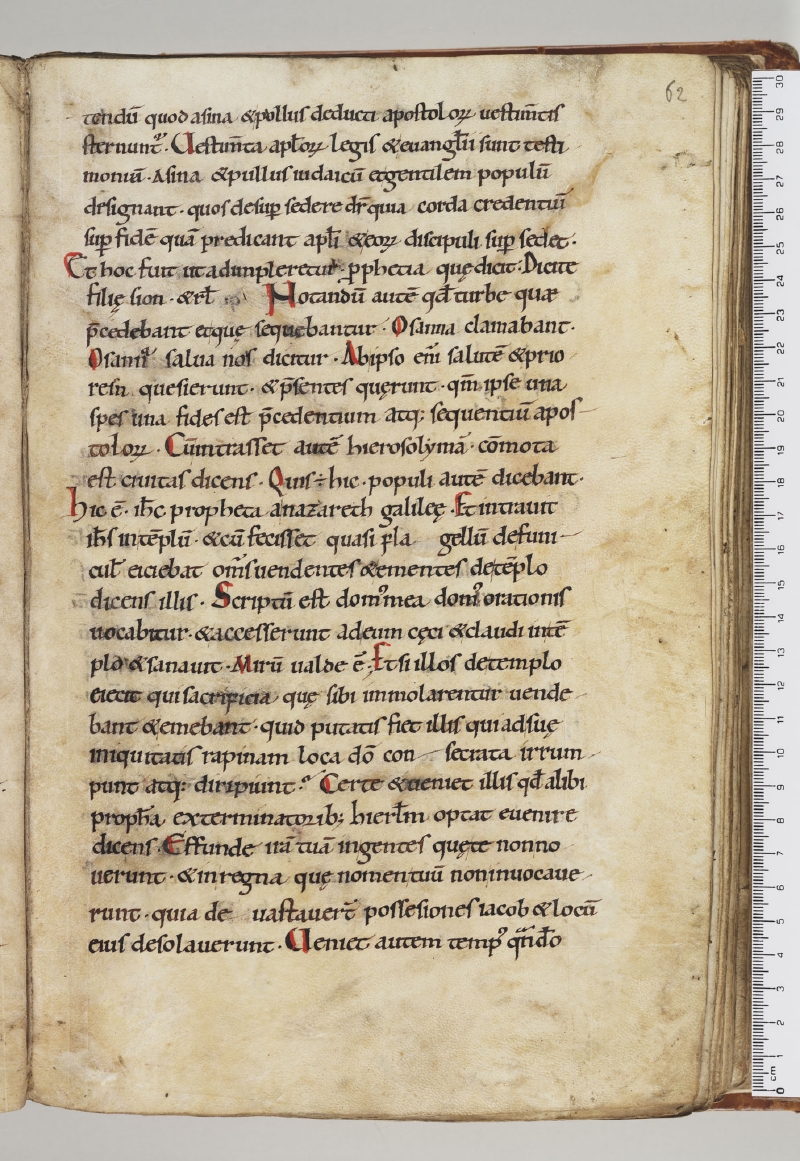 62
tendū quod asina &pullus deducti apostoloꝝ uestim̄tis
sternunt᷑. Uestim̄ta apl̄oꝝ legis &euangl̄ii sunt testi
moniū. Asina &pullus iudaicū etgentilem populū
designant. quos desup̱ sedere dr̄ quia corda credentiū
sup̱ fidē quā predicant apl̄i &eoꝝ discipuli sup̱ sedet.
Et hoc fuit utadimpleretur. ꝓphetia quę dicit: Dicite
filię sion. &rl̄ Notandū autē qd̄ turbe quae
p̄cedebant etquę sequebantur. Osanna clamabant.
Osanna salua nos dicitur. Abipso eni̅ salutē &prio
res quesierunt. &p̄sentes quęrunt. qm̄ ipse una
spes una fides est p̄cedentium atq; sequentiū apos
toloꝝ. Cūintrasset autē hierosolymā. cōmota
est ciuitas dicens. Quis ÷ hic. populi autē dicebant.
hic ē. ih̄c propheta anazareth galileę. Et intrauit
ih̄s intēplū. &cū fecisset quasi fla gellū defuni
cul̄ eiciebat om̄s uendentes &ementes detēplo
dicens illis. Scriptū est domꝰ mea domꝰ orationis
uocabitur. &accesserunt adeum cęci &claudi intē
plo &sanauit. Mirū ualde ē. Et si illos detemplo
eiecit qui sacrificia quę sibi immolarentur uende
bant &emebant. quid putatis fiet illis qui adsuę
iniquitatis rapinam loca dō con secrata irrum
punt atq; diripiunt. Certe &ueniet illis qd̄ alibi
proph̄a exterminatorib; hierl̄m optat euenire
dicens. Effunde irā tuā ingentes quęte nonno
uerunt. &inregna quę nomentuū noninuocaue
runt. quia de uastauer̄t possesiones iacob &locū
eius desolauerunt. Ueniet autem tempꝰ qn̄do